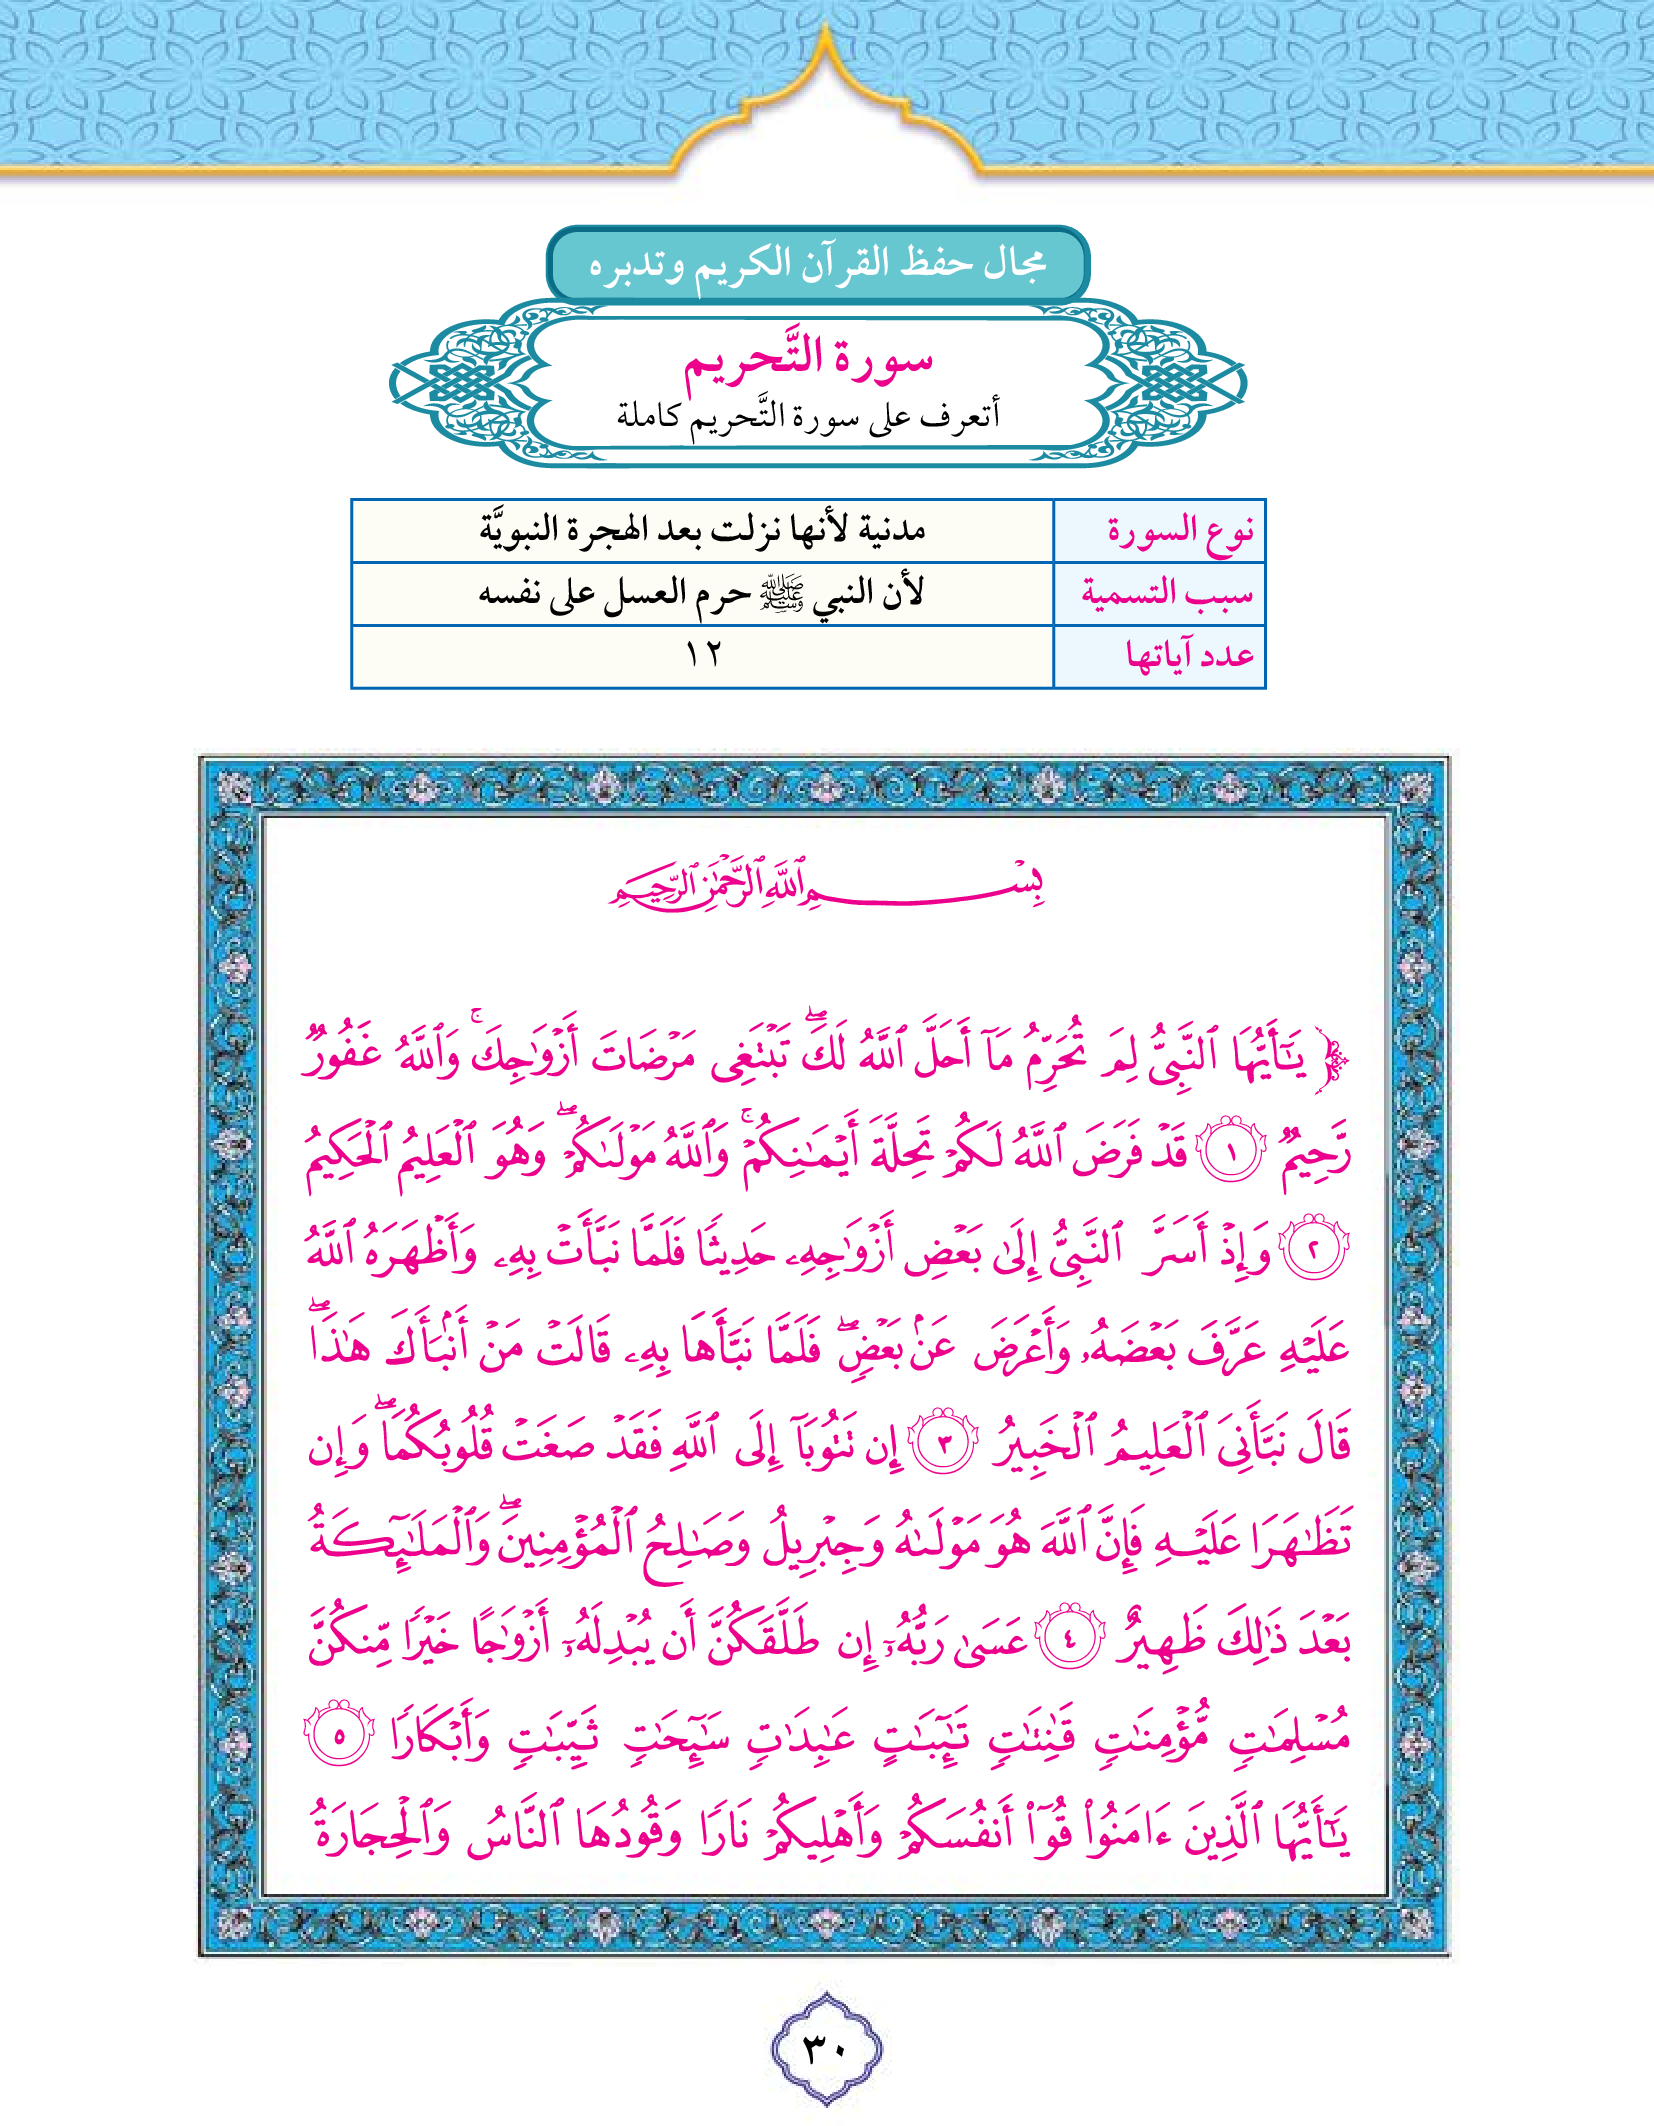 مجال حفظ القرآن الكريم وتدبره
سورة التَّحريم
أتعرف على سورة التَّحريم كاملة
نوع السورة مدنية لأنها نزلت بعد الهجرة النبويَّة
سبب التسمية لأن النبي ﷺ حرم العسل على نفسه
عدد آياتها ١٢
بِسْمِ ٱللَّهِ ٱلرَّحْمَٰنِ ٱلرَّحِيمِ
﴿ يَٰٓأَيُّهَا ٱلنَّبِىُّ لِمَ تُحَرِّمُ مَآ أَحَلَّ ٱللَّهُ لَكَ ۖ تَبْتَغِى مَرْضَاتَ أَزْوَٰجِكَ ۚ وَٱللَّهُ غَفُورٌ
رَّحِيمٌ ١ قَدْ فَرَضَ ٱللَّهُ لَكُمْ تَحِلَّةَ أَيْمَٰنِكُمْ ۚ وَٱللَّهُ مَوْلَىٰكُمْ ۖ وَهُوَ ٱلْعَلِيمُ ٱلْحَكِيمُ
٢ وَإِذْ أَسَرَّ ٱلنَّبِىُّ إِلَىٰ بَعْضِ أَزْوَٰجِهِۦ حَدِيثًا فَلَمَّا نَبَّأَتْ بِهِۦ وَأَظْهَرَهُ ٱللَّهُ
عَلَيْهِ عَرَّفَ بَعْضَهُۥ وَأَعْرَضَ عَنۢ بَعْضٍ ۖ فَلَمَّا نَبَّأَهَا بِهِۦ قَالَتْ مَنْ أَنۢبَأَكَ هَٰذَا ۖ
قَالَ نَبَّأَنِىَ ٱلْعَلِيمُ ٱلْخَبِيرُ ٣ إِن تَتُوبَآ إِلَى ٱللَّهِ فَقَدْ صَغَتْ قُلُوبُكُمَا ۖ وَإِن
تَظَٰهَرَا عَلَيْهِ فَإِنَّ ٱللَّهَ هُوَ مَوْلَىٰهُ وَجِبْرِيلُ وَصَٰلِحُ ٱلْمُؤْمِنِينَ ۖ وَٱلْمَلَٰٓئِكَةُ
بَعْدَ ذَٰلِكَ ظَهِيرٌ ٤ عَسَىٰ رَبُّهُۥٓ إِن طَلَّقَكُنَّ أَن يُبْدِلَهُۥٓ أَزْوَٰجًا خَيْرًا مِّنكُنَّ
مُسْلِمَٰتٍ مُّؤْمِنَٰتٍ قَٰنِتَٰتٍ تَٰٓئِبَٰتٍ عَٰبِدَٰتٍ سَٰٓئِحَٰتٍ ثَيِّبَٰتٍ وَأَبْكَارًا ٥
يَٰٓأَيُّهَا ٱلَّذِينَ ءَامَنُوا۟ قُوٓا۟ أَنفُسَكُمْ وَأَهْلِيكُمْ نَارًا وَقُودُهَا ٱلنَّاسُ وَٱلْحِجَارَةُ
٣٠